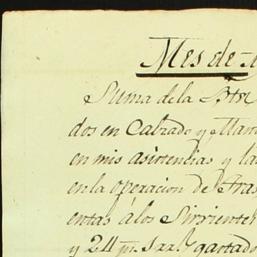 Mes de
Suma de la
dos en Calzado y
en mis asistencias y la
en la operacion de tras
entas á los Sirvientes
y 24 p.s
gastado